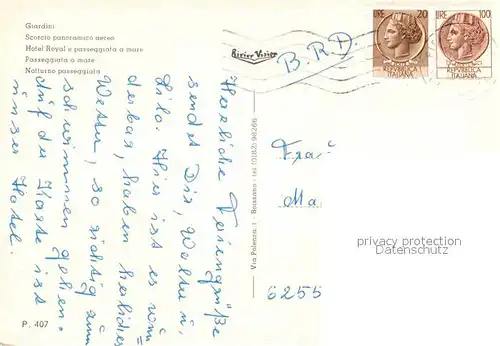 Giardini
Scorcio panoramico aereo
Hotel Royal e passeggiata a mare
Passeggiata a mare
Notturno passeggiata
Rivier Visier
B.R.D.
LIRE 20
REPUBBLICA
ITALIANA
LIRE 100
REPUBBLICA
ITALIANA
Herzliche Feriengrüße
sendet Dir, Welta u.
Lilo. Hier ist es wun
derbar, haben herrliches
Wetter, so richtig zum
schwimmen gehen.
Auf der Karte ist
unser Hotel.
Via Polenza, 1 - Boissano - tel (0182) 98266
Frau
Ma
6255
privacy protection
DELCAMPE
P. 407